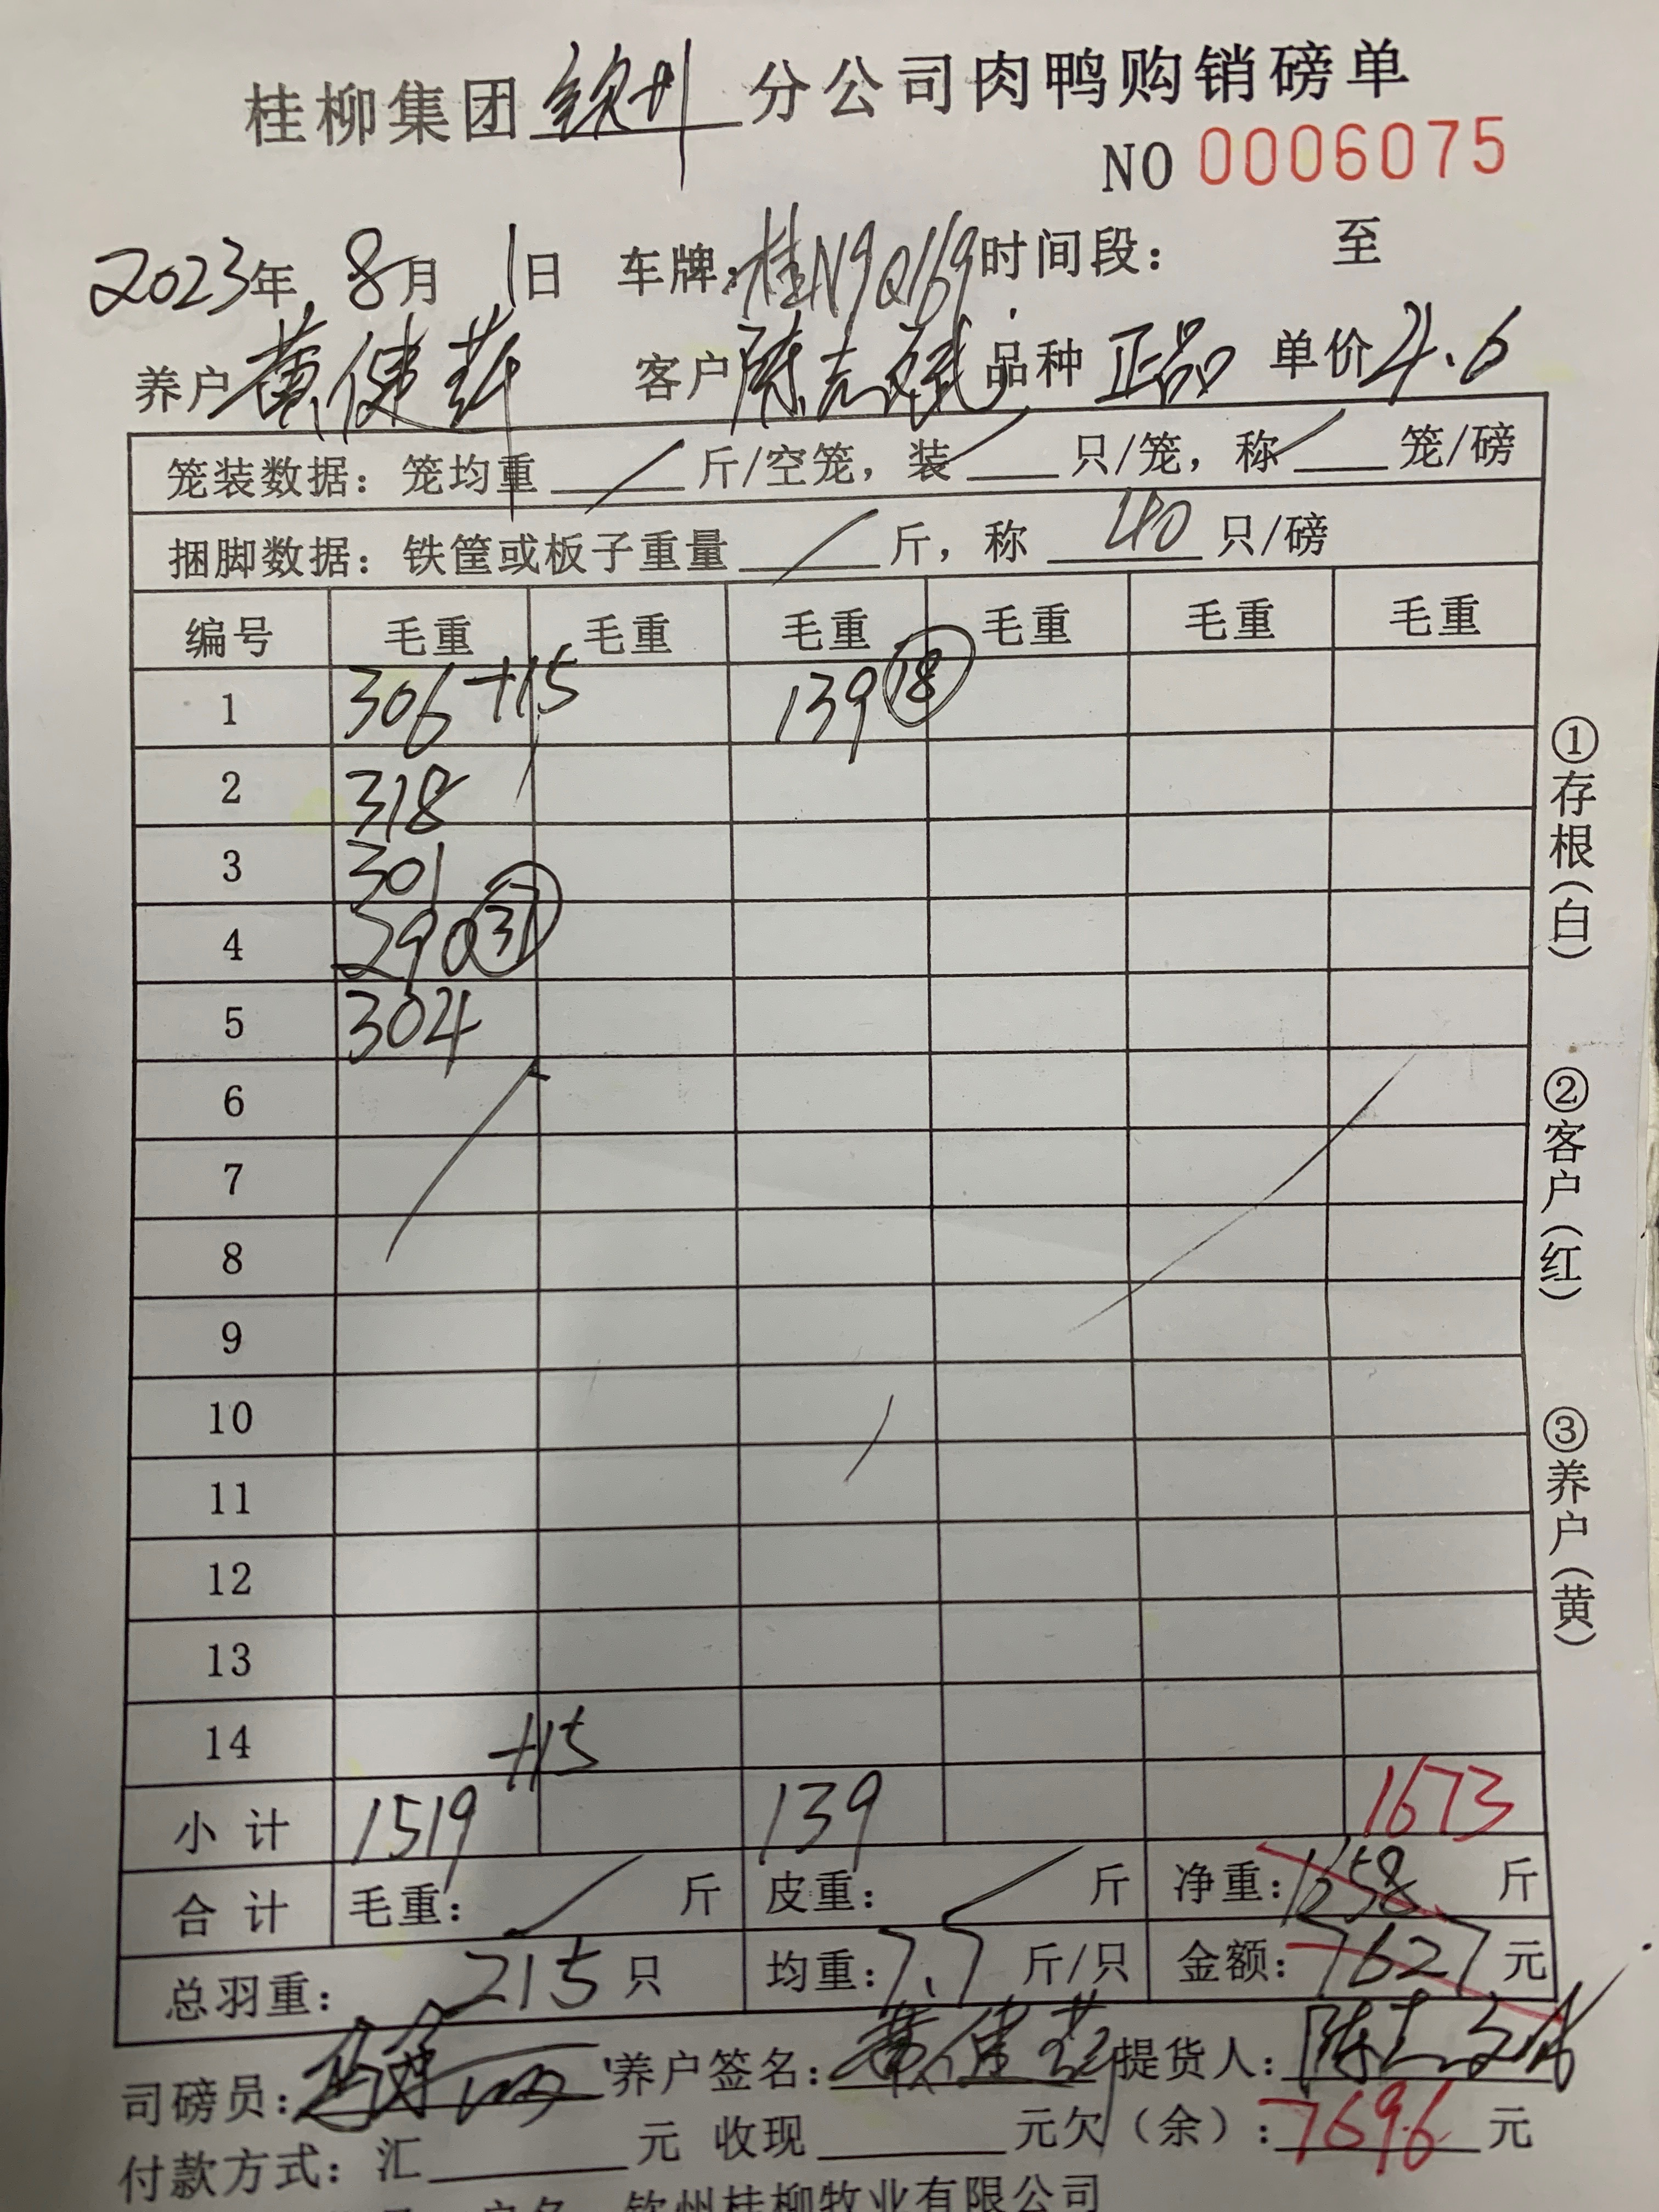 桂柳集团钦州分公司肉鸭购销磅单
NO 0006075
2023年 8月 1日 车牌:桂N9Q169 时间段: 至
养户 黄健 客户 陈志斌 品种 正品 单价 4.6
笼装数据: 笼均重 / 斤/空笼, 装 / 只/笼, 称 / 笼/磅
捆脚数据: 铁筐或板子重量 / 斤, 称 40 只/磅
编号 毛重 毛重 毛重 毛重 毛重 毛重
1 306 +15 139 18
2 318
3 301
4 290
5 304
6
7
8
9
10
11
12
13
14 +15
小 计 1519 139 1673
合 计 毛重: / 斤 皮重: / 斤 净重: 1658 斤
总羽重: 215 只 均重: 7.7 斤/只 金额: 7627 元
司磅员: 养户签名: 黄健 提货人: 陈志斌
付款方式: 汇 元 收现 元欠(余): 7696 元
钦州桂柳牧业有限公司
①存根(白)
②客户(红)
③养户(黄)